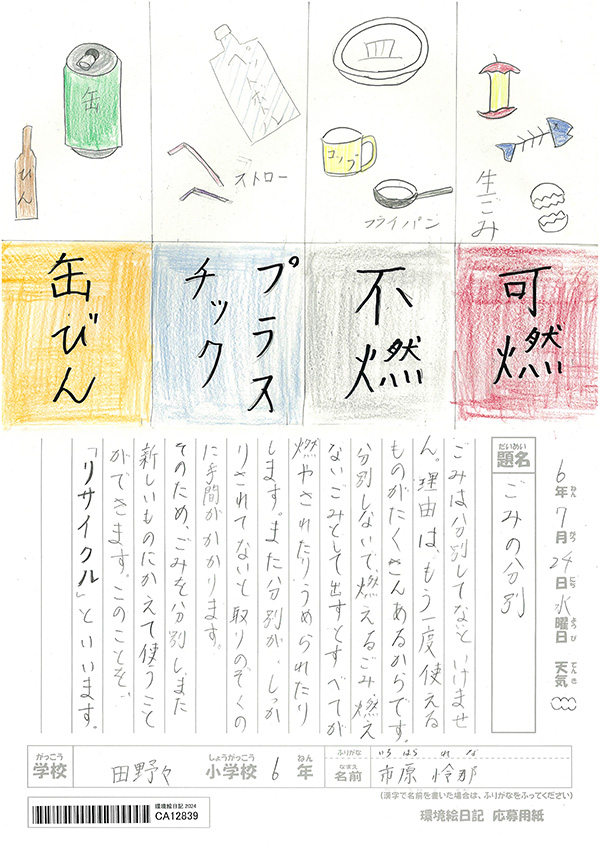 缶
びん
ペットボトル
ストロー
皿
コップ
フライパン
生ごみ
可燃
不燃
プラス
チック
缶びん
6年7月24日水曜日 天気
ねん がつ にち ようび てんき
だいめい
題名
ごみの分別
ごみは分別してないといけませ
ん。理由は、もう一度使える
ものがたくさんあるからです。
分別しないで、燃えるごみ、燃え
ないごみとして出すとすべてが
燃やされたりうめられたり
します。また分別が、しっか
りされてないと取りのぞくの
に手間がかかります。
そのため、ごみを分別し、また
新しいものにかえて使うこと
ができます。このことを、
「リサイクル」といいます。
がっこう しょうがっこう ねん
学校 田野々 小学校 6 年
ふりがな いちはら れな
なまえ
名前 市原 怜那
(漢字で名前を書いた場合は、ふりがなをふってください)
環境絵日記 2024
CA12839
環境絵日記 応募用紙